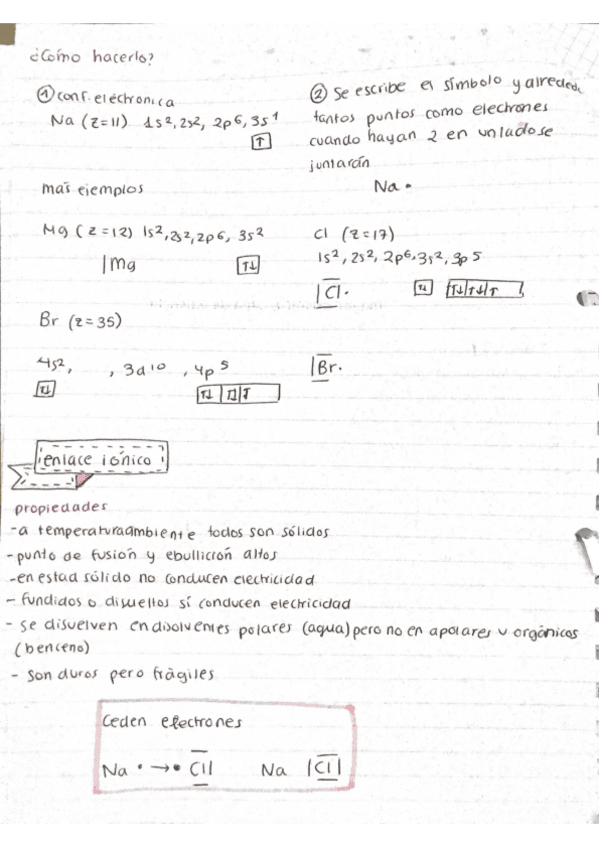 ¿Cómo hacerlo?
① conf. electronica
Na (Z=11) 1s², 2s², 2p⁶, 3s¹
↑
② Se escribe el símbolo y alreded.
tantos puntos como electrones
cuando hayan 2 en un lado se
juntarán
Na •
más ejemplos
Mg (Z=12) 1s², 2s², 2p⁶, 3s²
|Mg
↑↓
Cl (Z=17)
1s², 2s², 2p⁶, 3s², 3p⁵
|Cl.
↑↓ ↑↓|↑↓|↑
Br (Z=35)
4s², , 3d¹⁰ , 4p⁵
↑↓ ↑↓|↑↓|↑
|Br.
enlace iónico
propiedades
-a temperatura ambiente todos son sólidos
-punto de fusión y ebullición altos
-en estad sólido no conducen electricidad
- fundidos o disueltos sí conducen electricidad
- se disuelven en disolventes polares (agua) pero no en apolares u orgánicos
(benceno)
- son duros pero frágiles
Ceden electrones
Na •→• Cl| Na |Cl|